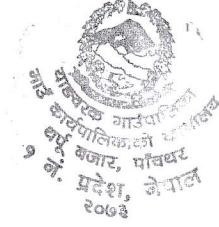 याङवरक गाउँपालिका
गाउँ कार्यपालिकाको कार्यालय
थर्पु बजार, पाँचथर
१ नं. प्रदेश, नेपाल
२०७३